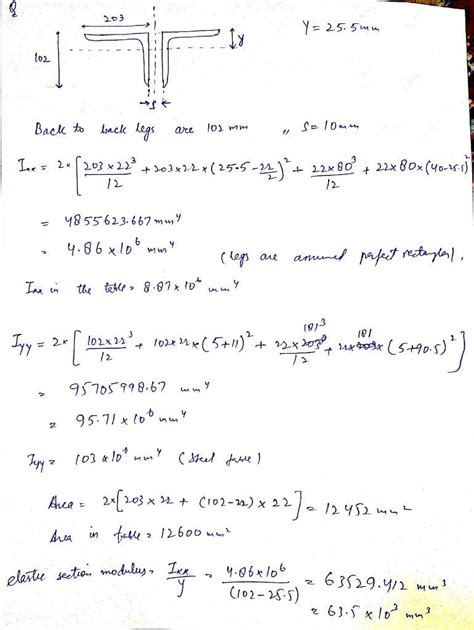 Q
203
Y = 25.5mm
102
y
s
Back to back legs are 102 mm ,, S = 10mm
Ixx = 2x [ 203 x 22³/12 + 203 x 22 x (25.5 - 22/2)² + 22 x 80³/12 + 22 x 80 x (40-25.5)² ]
= 4855623.667 mm⁴
= 4.86 x 10⁶ mm⁴ (legs are assumed perfect rectangles).
Ixx in the table = 8.87 x 10⁶ mm⁴
Iyy = 2x [ 102 x 22³/12 + 102 x 22 x (5+11)² + 22 x 181³/12 + 22 x 181 x (5+90.5)² ]
= 95705998.67 mm⁴
= 95.71 x 10⁶ mm⁴
Iyy = 103 x 10⁶ mm⁴ (Steel table)
Area = 2x [203 x 22 + (102-22) x 22] = 12452 mm²
Area in table = 12600 mm²
elastic section modulus = Ixx/y = 4.86 x 10⁶/(102-25.5) = 63529.412 mm³
= 63.5 x 10³ mm³